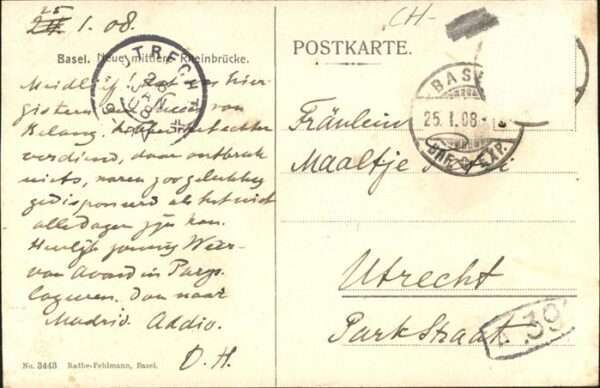 25 1.08.
CH-
Basel. Neue mittlere Rheinbrücke.
POSTKARTE.
UTRECHT
BASEL
25.I.08.
EXP.
gisteren van
Belang,
verdiend, daar ontbrak
niets, waren zoo gelukkig
gedisponeerd als het niet
alle dagen zijn kan.
Heerlijk zonnig Weer
van Avond in Parijs
logeeren. Dan naar
Madrid. Addio.
D. H.
Fräulein
Maaltje
Utrecht
Parkstraat
39
No. 3443 Rathe-Fehlmann, Basel.